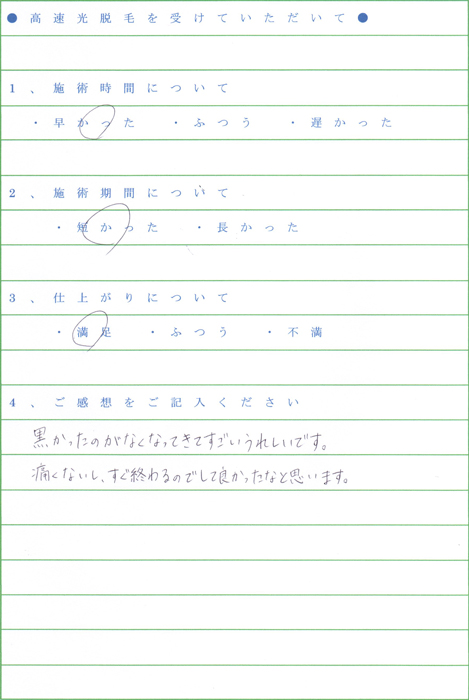 ● 高速光脱毛を受けていただいて ●
1、施術時間について
・早かった ・ふつう ・遅かった
2、施術期間について
・短かった ・長かった
3、仕上がりについて
・満足 ・ふつう ・不満
4、ご感想をご記入ください
黒かったのがなくなってきてすごいうれしいです。
痛くないし、すぐ終わるのでして良かったなと思います。